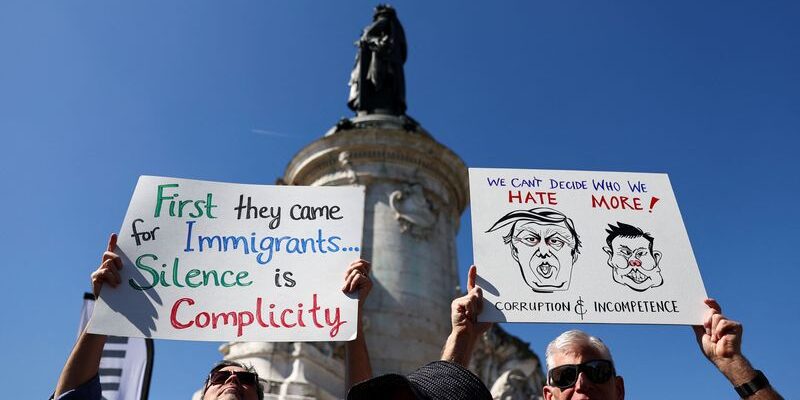 First they came
for Immigrants...
Silence is
Complicity
WE CAN'T DECIDE WHO WE
HATE MORE!
CORRUPTION & INCOMPETENCE